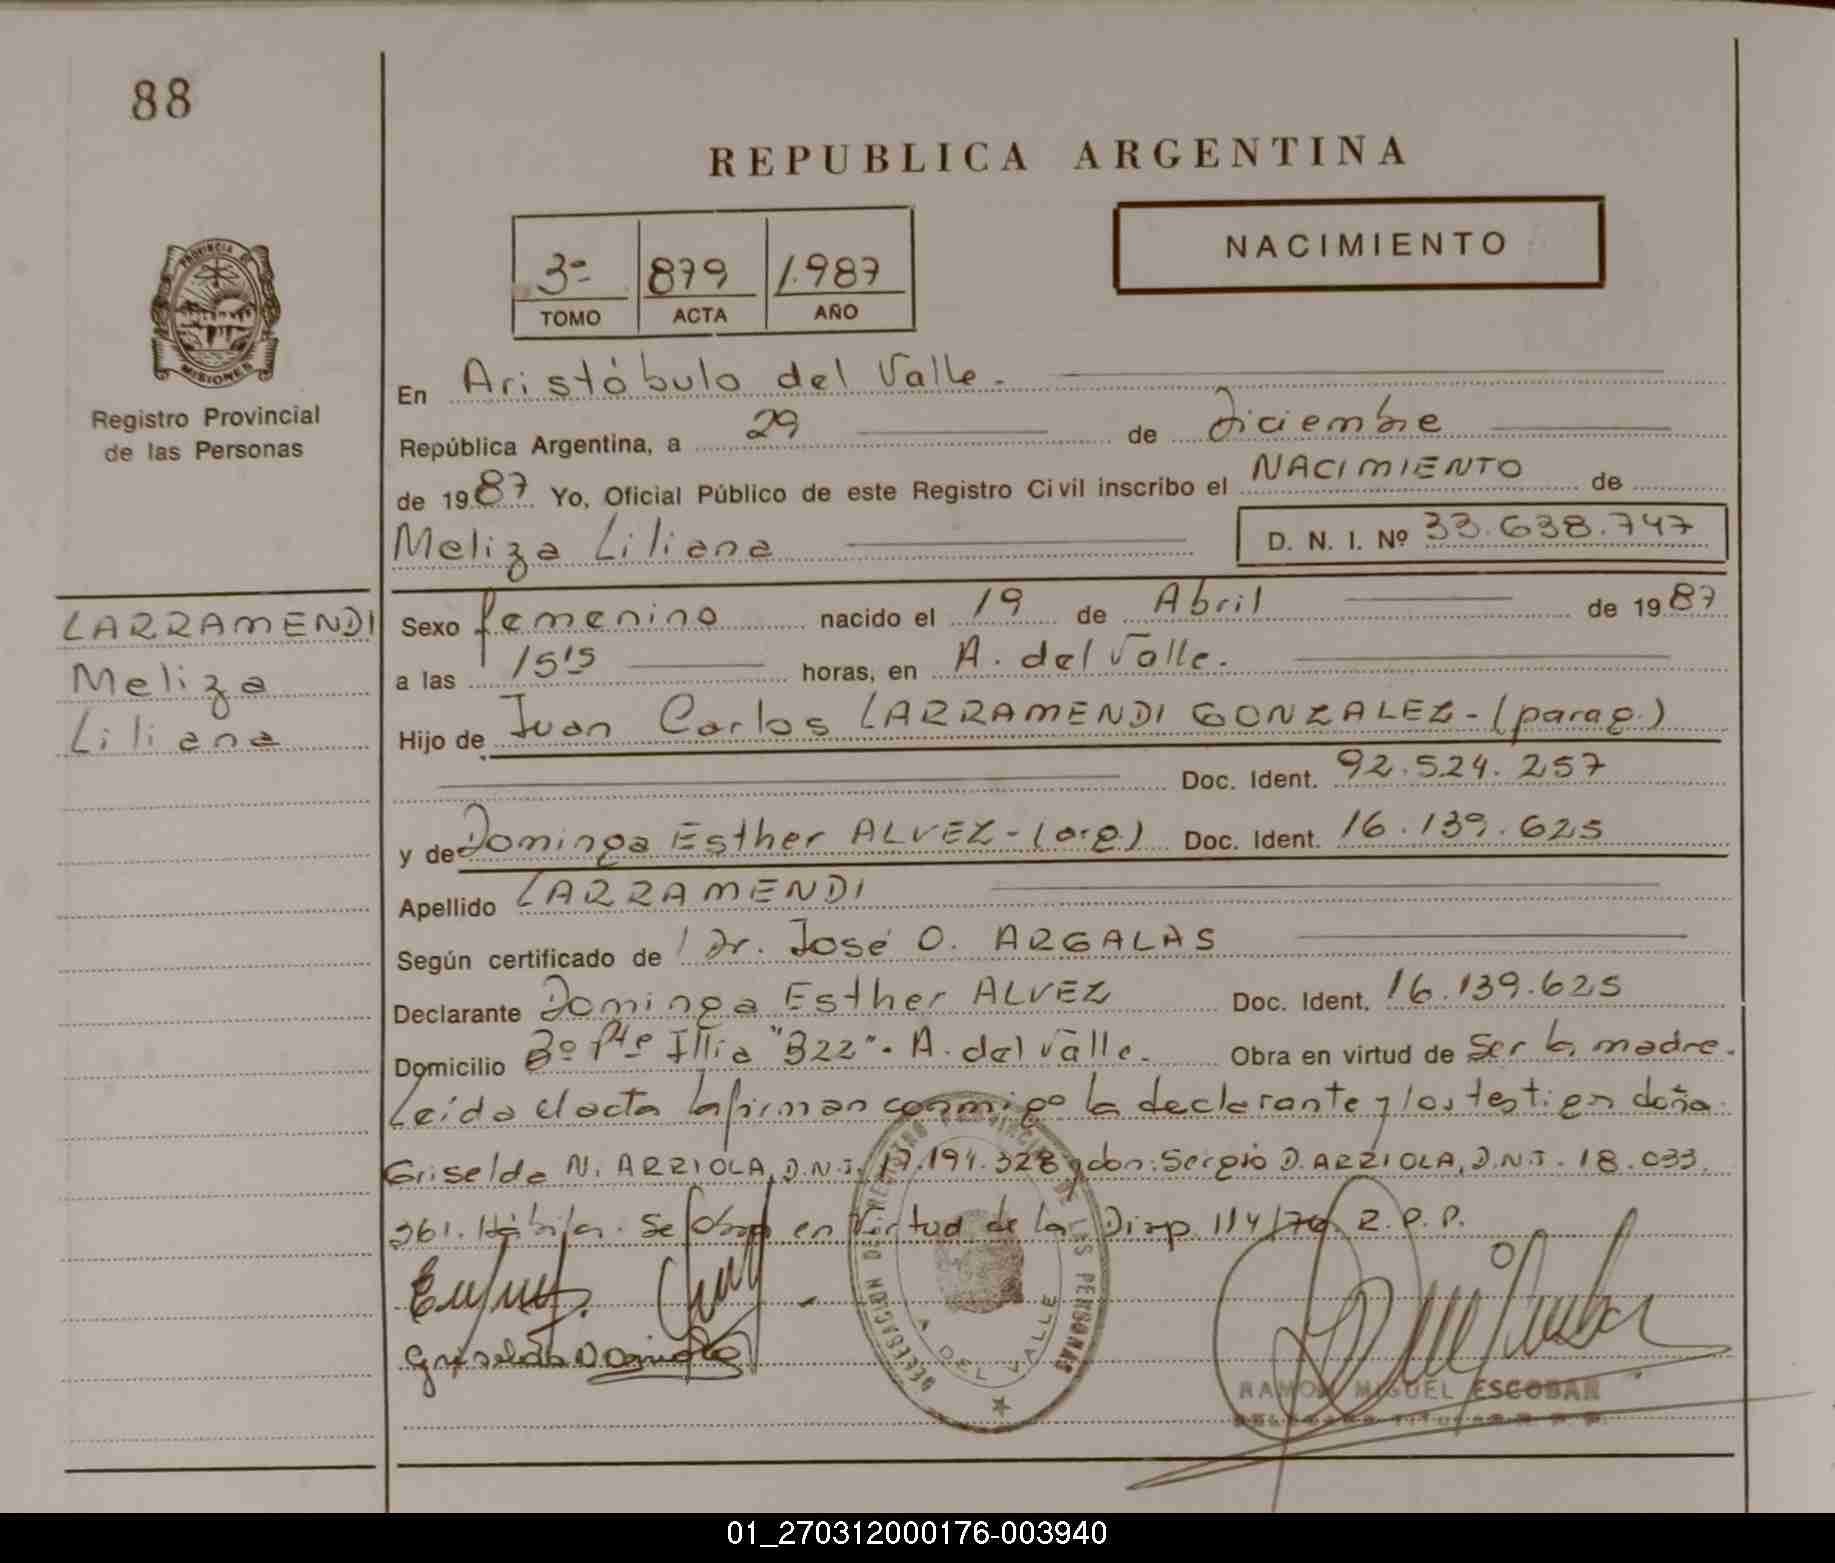 88
REPUBLICA ARGENTINA
3º 879 1.987
TOMO ACTA AÑO
NACIMIENTO
PROVINCIA DE
MISIONES
Registro Provincial
de las Personas
En Aristóbulo del Valle.
República Argentina, a 29 de Diciembre
de 1987 Yo, Oficial Público de este Registro Civil inscribo el NACIMIENTO de
Meliza Liliana D. N. I. Nº 33.638.747
LARRAMENDI
Meliza
Liliana
Sexo femenino nacido el 19 de Abril de 1987
a las 15¹⁵ horas, en A. del Valle.
Hijo de Juan Carlos LARRAMENDI GONZALEZ-(parag.)
Doc. Ident. 92.524.257
y de Dominga Esther ALVEZ-(arg.) Doc. Ident. 16.139.625
Apellido LARRAMENDI
Según certificado de Dr. José O. ARGALAS
Declarante Dominga Esther ALVEZ Doc. Ident. 16.139.625
Domicilio Bº Pte Illia "322"- A. del Valle. Obra en virtud de Ser la madre.
Leída el acta la firman conmigo la declarante y los testigos doña
Griselda N. ARRIOLA, D.N.I. 17.194.328 y don: Sergio D. ARRIOLA, D.N.I. 18.033.
361. Hábiles. Se obra en virtud de la Disp. 114/76 R.P.P.
DELEGACION DEL REGISTRO PROVINCIAL DE LAS PERSONAS
A. DEL VALLE
RAMON MIGUEL ESCOBAR
01_270312000176-003940